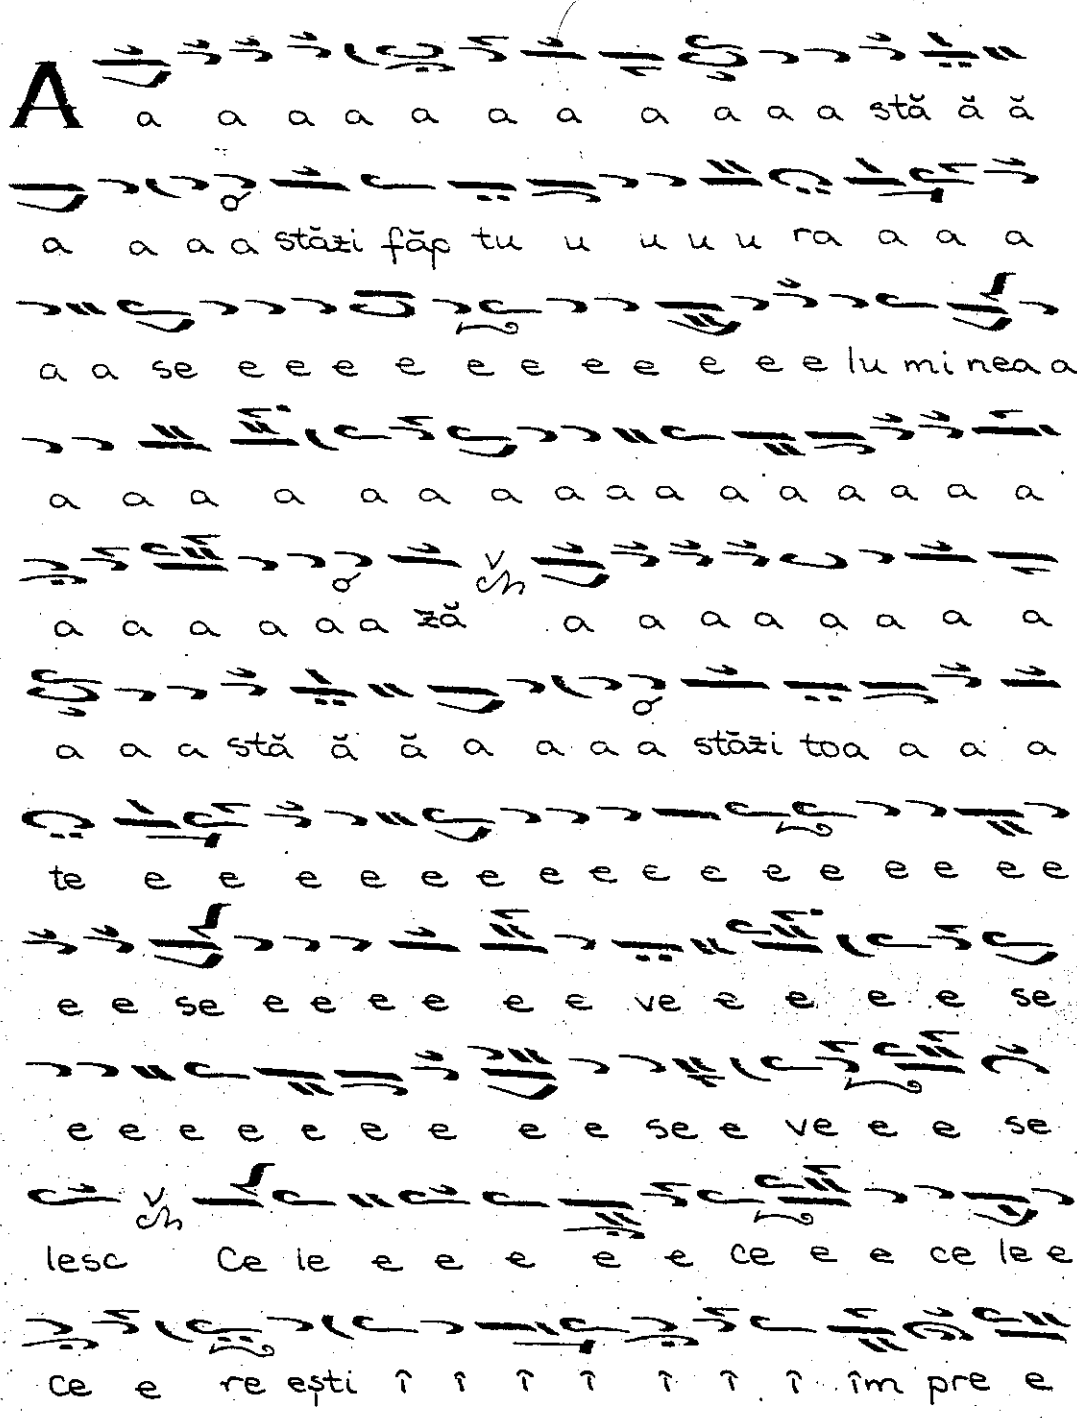 A a a a a a a a a a a a stă ă ă
a a a a stăzi făp tu u u u u ra a a a
a a se e e e e e e e e e e e lu mi nea a
a a a a a a a a a a a a a a a a
a a a a a a ză a a a a a a a a
a a a stă ă ă a a a a stăzi toa a a a
te e e e e e e e e e e e e e e e e
e e se e e e e e e ve e e e e se
e e e e e e e e e se e ve e e se
lesc Ce le e e e e e ce e e ce le e
ce e re ești î î î î î î î îm pre e